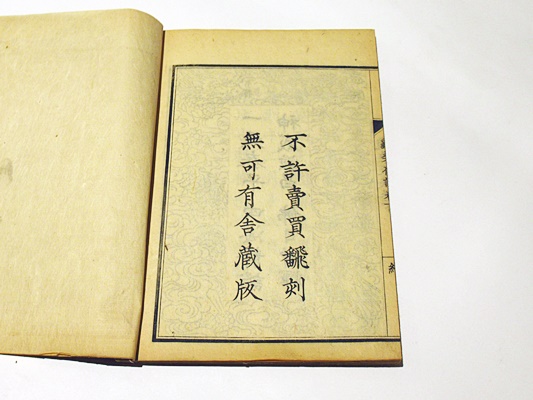 不許賣買翻刻
無可有舎蔵版